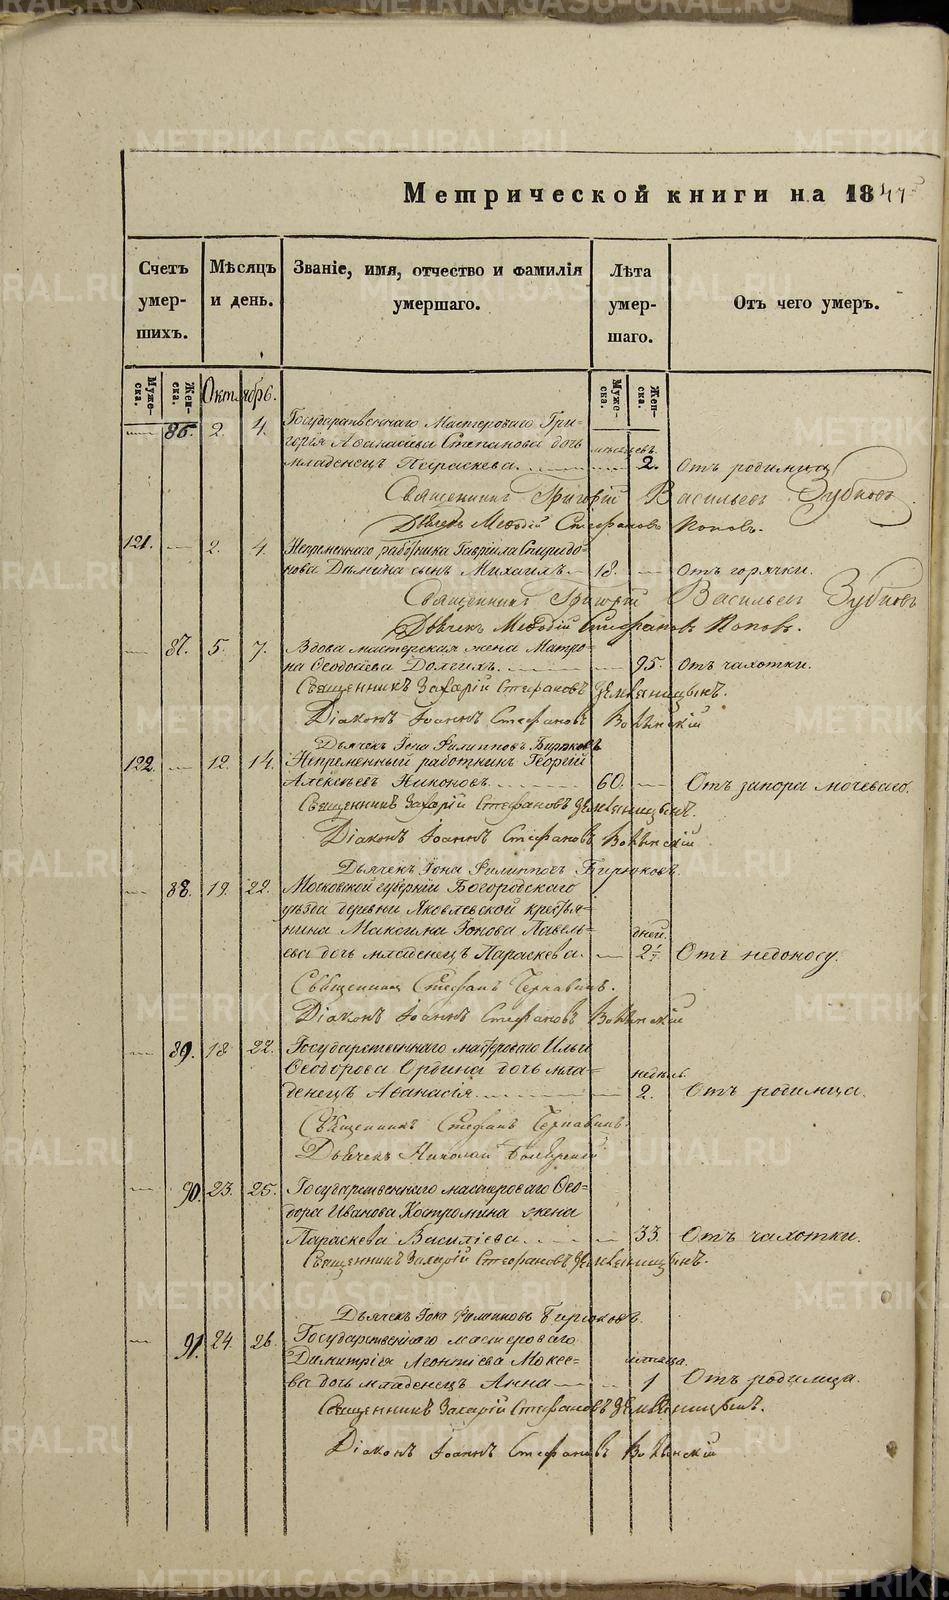 Метрической книги на 184
Счетъ умер- шихъ.
Мѣсяцъ и день.
Званіе, имя, отчество и фамилія умершаго.
Лѣта умер- шаго.
Отъ чего умеръ.
Муже- ска. Жен- ска. Октябрь. Муже- ска. Жен- ска.
86. 2. 4. Государственнаго Мастероваго Гри-
горія Аѳанасіева Степанова дочь мѣсяцевъ
младенецъ Параскева. 2. Отъ родимца
Священникъ Григорій Васильевъ Зубковъ
Дьячекъ Меѳодій Стефановъ Поповъ.
121. 2. 4. Непременнаго работника Гавріила Спиридо-
нова Демина сынъ Михаилъ 18. Отъ горячки.
Священникъ Григорій Васильевъ Зубковъ
Дьячекъ Меѳодій Стефановъ Поповъ.
87. 5. 7. Вдова мастерская жена Матро-
на Ѳеодосіева Долгихъ. 95. Отъ чахотки.
Священникъ Захарій Стефановъ
Діаконъ Іоаннъ Стефановъ
Дьячекъ Іона Филипповъ Бирюковъ
122. 12. 14. Непременный работникъ Георгій
Алексѣевъ Никоновъ. 60. Отъ запора мочеваго.
Священникъ Захарій Стефановъ
Діаконъ Іоаннъ Стефановъ
Дьячекъ Іона Филипповъ Бирюковъ
88. 19. 22. Московской губерніи Богородскаго
уѣзда деревни Яковлевской крестья-
нина Максима Іонова Павель- дней.
ева дочь младенецъ Параскева. 2. Отъ недоносу.
Священникъ Стефанъ Чернавинъ.
Діаконъ Іоаннъ Стефановъ
89. 18 22. Государственнаго мастероваго Ильи
Ѳеодорова Ордина дочь мла- недѣль.
денецъ Аѳанасія. 2. Отъ родимца.
Священникъ Стефанъ Чернавинъ.
Дьячекъ Николай
90. 23. 25. Государственнаго мастероваго Ѳео-
дора Иванова Костромина жена
Параскева Василіева. 33. Отъ чахотки.
Священникъ Захарій Стефановъ
Дьячекъ Іона Филипповъ Бирюковъ.
91. 24. 26. Государственнаго мастероваго
Димитрія Леонтіева Мокее- мѣсяца.
ва дочь младенецъ Анна 1 Отъ родимца.
Священникъ Захарій Стефановъ
Діаконъ Іоаннъ Стефановъ
METRIKI.GASO-URAL.RU